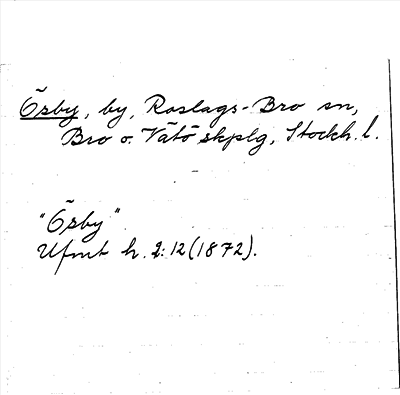 Ösby, by, Roslags-Bro sn,
Bro o. Vätö skplg, Stockh. l.
"Ösby"
Ufmt h. 2:12 (1872).